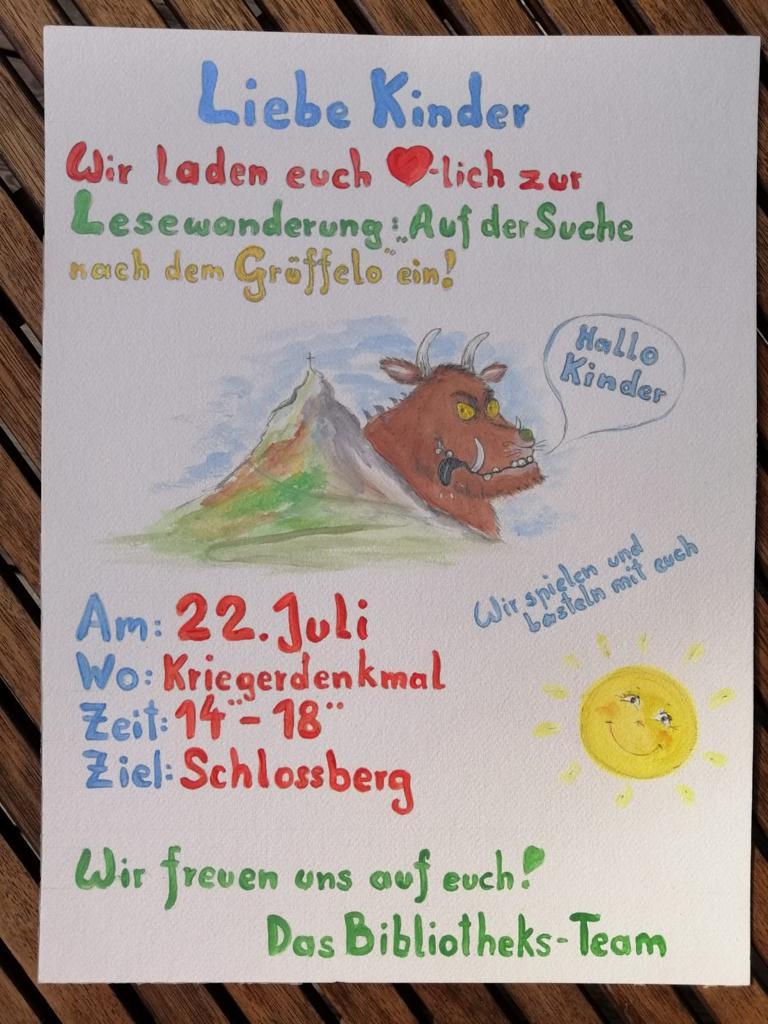 Liebe Kinder
Wir laden euch ♥-lich zur
Lesewanderung: „Auf der Suche
nach dem Grüffelo" ein!
Hallo
Kinder
Wir spielen und
basteln mit euch
Am: 22. Juli
Wo: Kriegerdenkmal
Zeit: 14°° - 18°°
Ziel: Schlossberg
Wir freuen uns auf euch!
Das Bibliotheks-Team